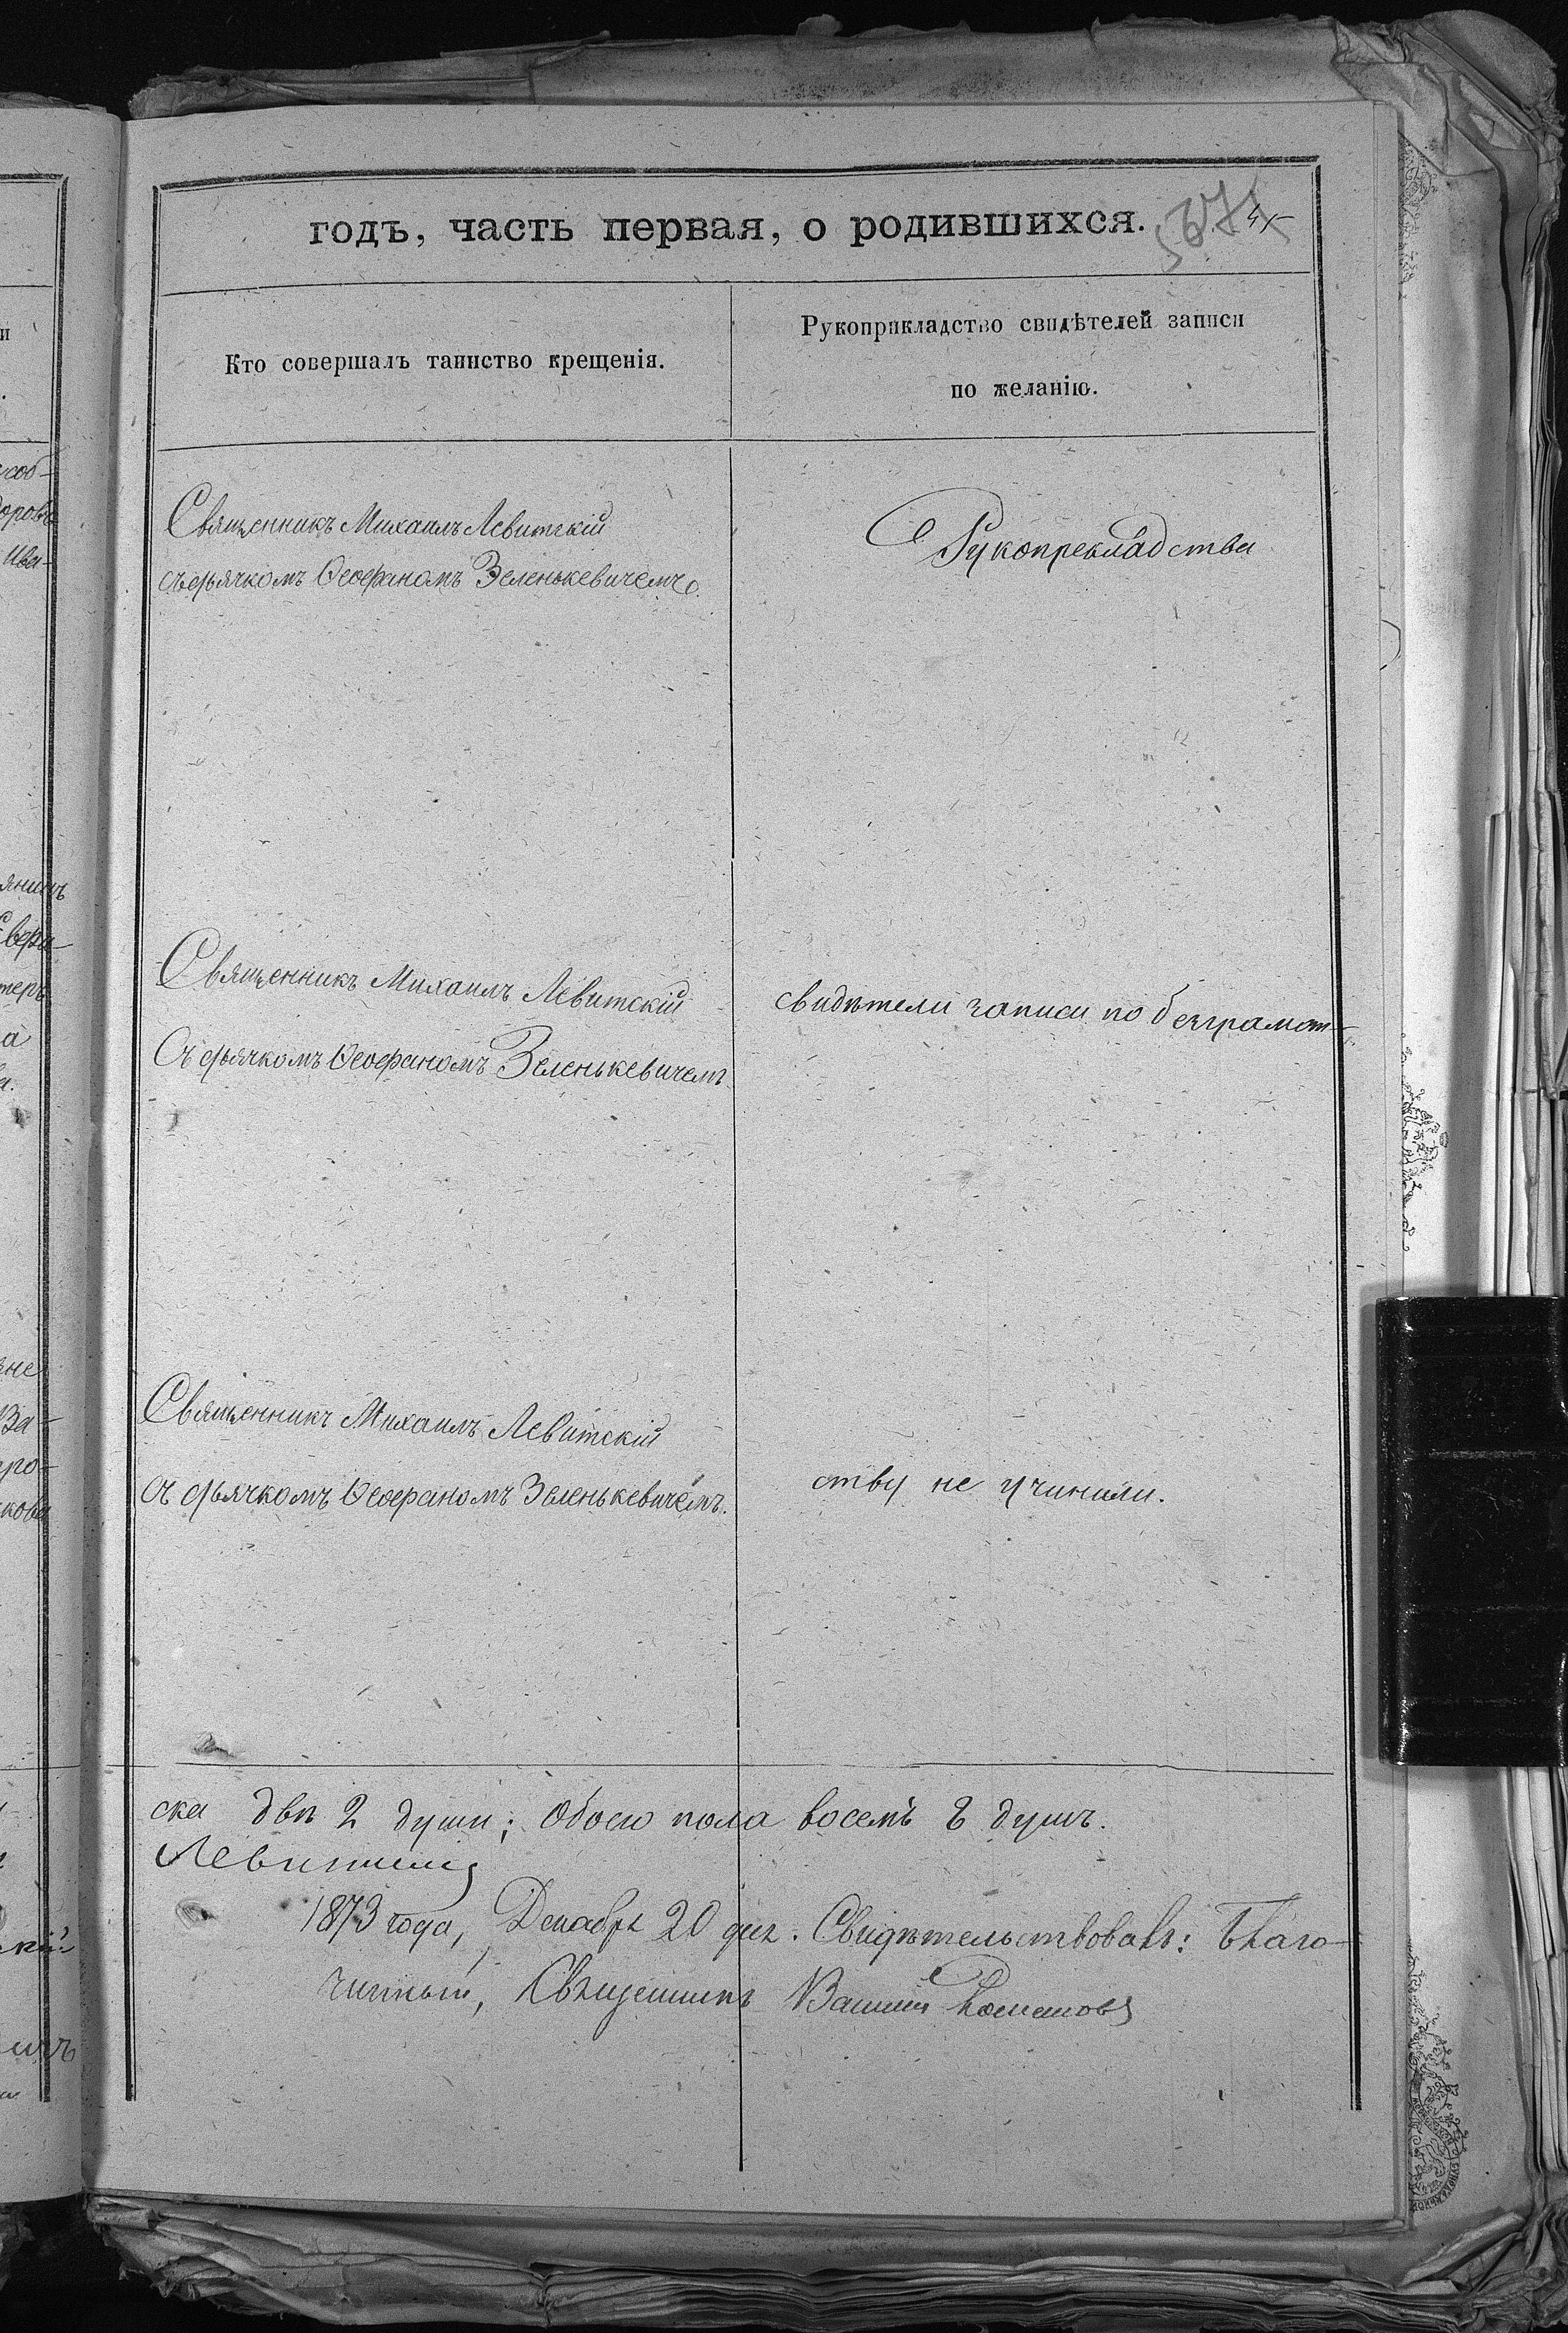 годъ, часть первая, о родившихся.
Кто совершалъ таинство крещенія.
Рукоприкладство свидѣтелей записи
по желанію.
Священникъ Михаилъ Левитскій
съ дьячкомъ Ѳеофаномъ Зеленькевичемъ.
Рукопрекладства
Священникъ Михаилъ Левитскій
Съ дьячкомъ Ѳеофаномъ Зеленькевичемъ
свидѣтели записи по безграмот-
Священникъ Михаилъ Левитскій
Съ дьячкомъ Ѳеофаномъ Зеленькевичемъ.
ству не учинили.
ска двѣ 2 души; Обоего пола восемь 8 душъ.
Левитскій
1873 года, Декабря 20 дня. Свидѣтельствовалъ: Благо-
чинный, Священникъ